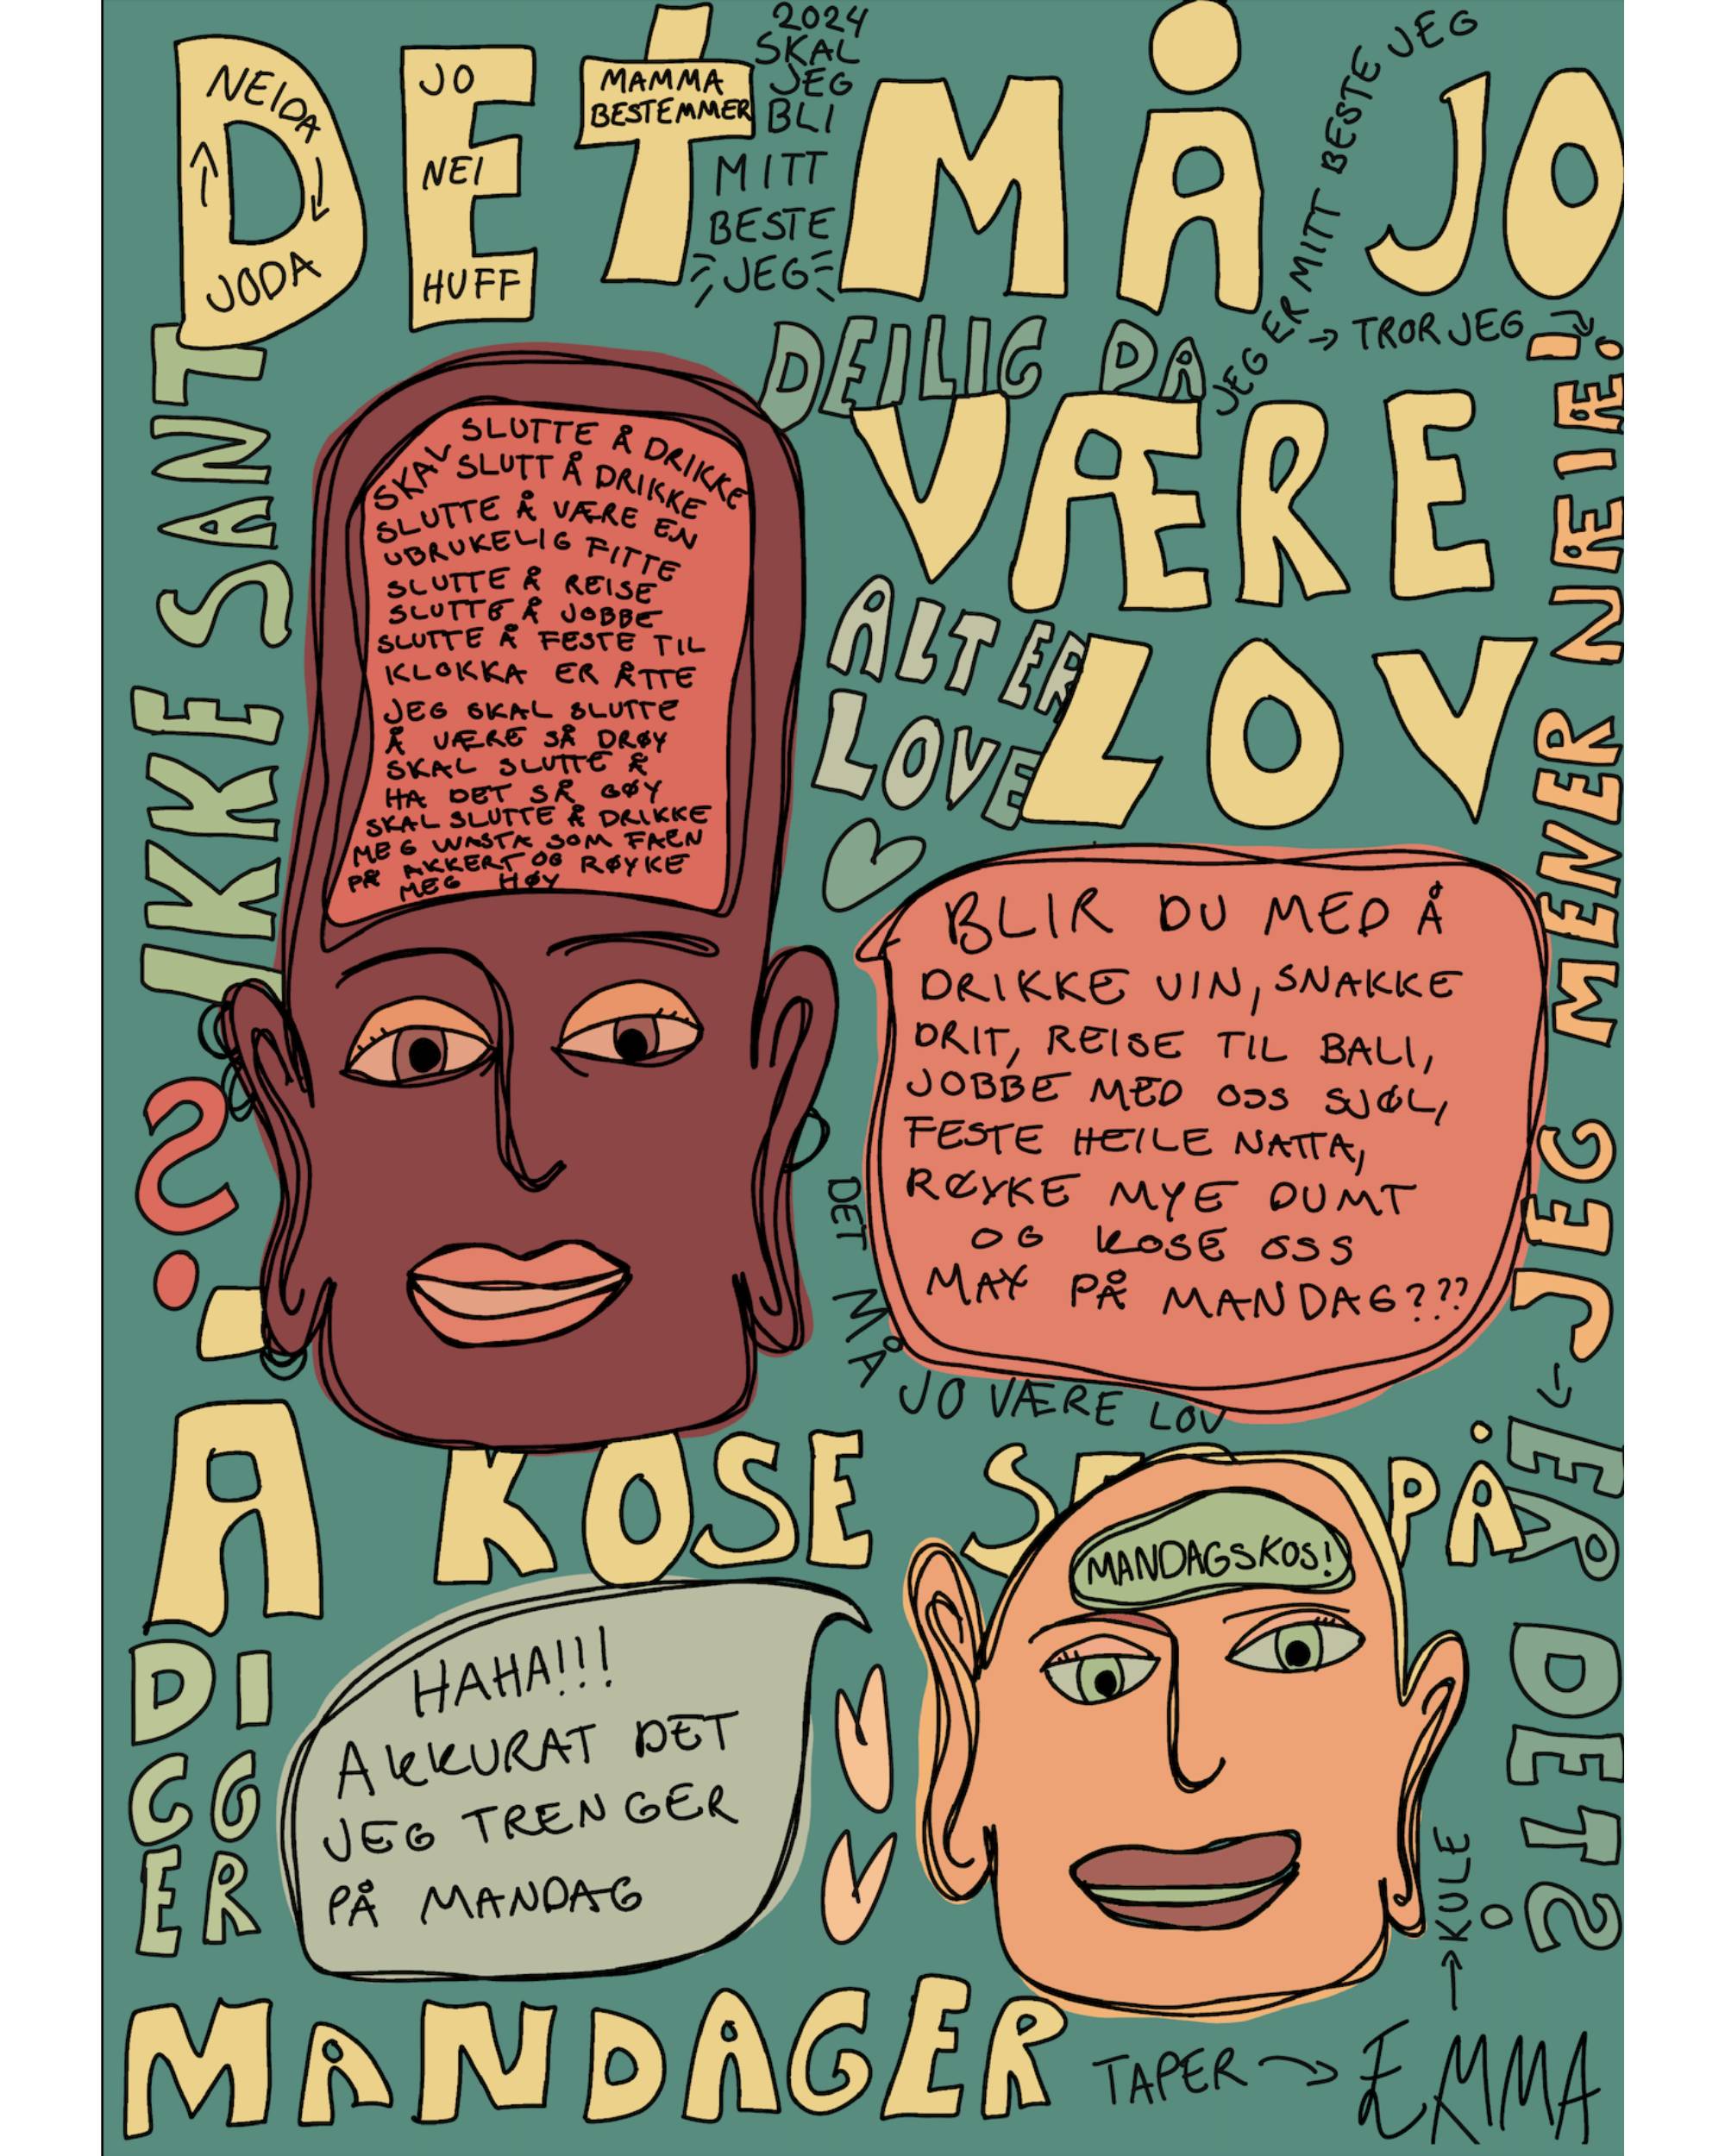 DET MÅ JO
NEIDA
JODA
JO
NEI
HUFF
MAMMA
BESTEMMER
2024
SKAL
JEG
BLI
MITT
BESTE
JEG
JEG ER MITT BESTE JEG
→ TROR JEG
DEILIG DA
VÆRE
ALT ER
LOVE
LOV
IKKE SANT
?
SKAL SLUTTE Å DRIKKE
SLUTT Å DRIKKE
SLUTTE Å VÆRE EN
UBRUKELIG FITTE
SLUTTE Å REISE
SLUTTE Å JOBBE
SLUTTE Å FESTE TIL
KLOKKA ER ÅTTE
JEG SKAL SLUTTE
Å VÆRE SÅ DRØY
SKAL SLUTTE Å
HA DET SÅ GØY
SKAL SLUTTE Å DRIKKE
MEG WASTA SOM FAEN
PÅ AKKERT OG RØYKE
MEG HØY
BLIR DU MED Å
DRIKKE VIN, SNAKKE
DRIT, REISE TIL BALI,
JOBBE MED OSS SJØL,
FESTE HEILE NATTA,
RØYKE MYE DUMT
OG KOSE OSS
MAX PÅ MANDAG???
DET MÅ JO VÆRE LOV
ER DET?
JEG MENER NÆIÆ!!
Å KOSE SE PÅ
MANDAGSKOS!
DIGGER
HAHA!!!
AKKURAT DET
JEG TRENGER
PÅ MANDAG
MANDAGER
TAPER → EMMA
→ KULE